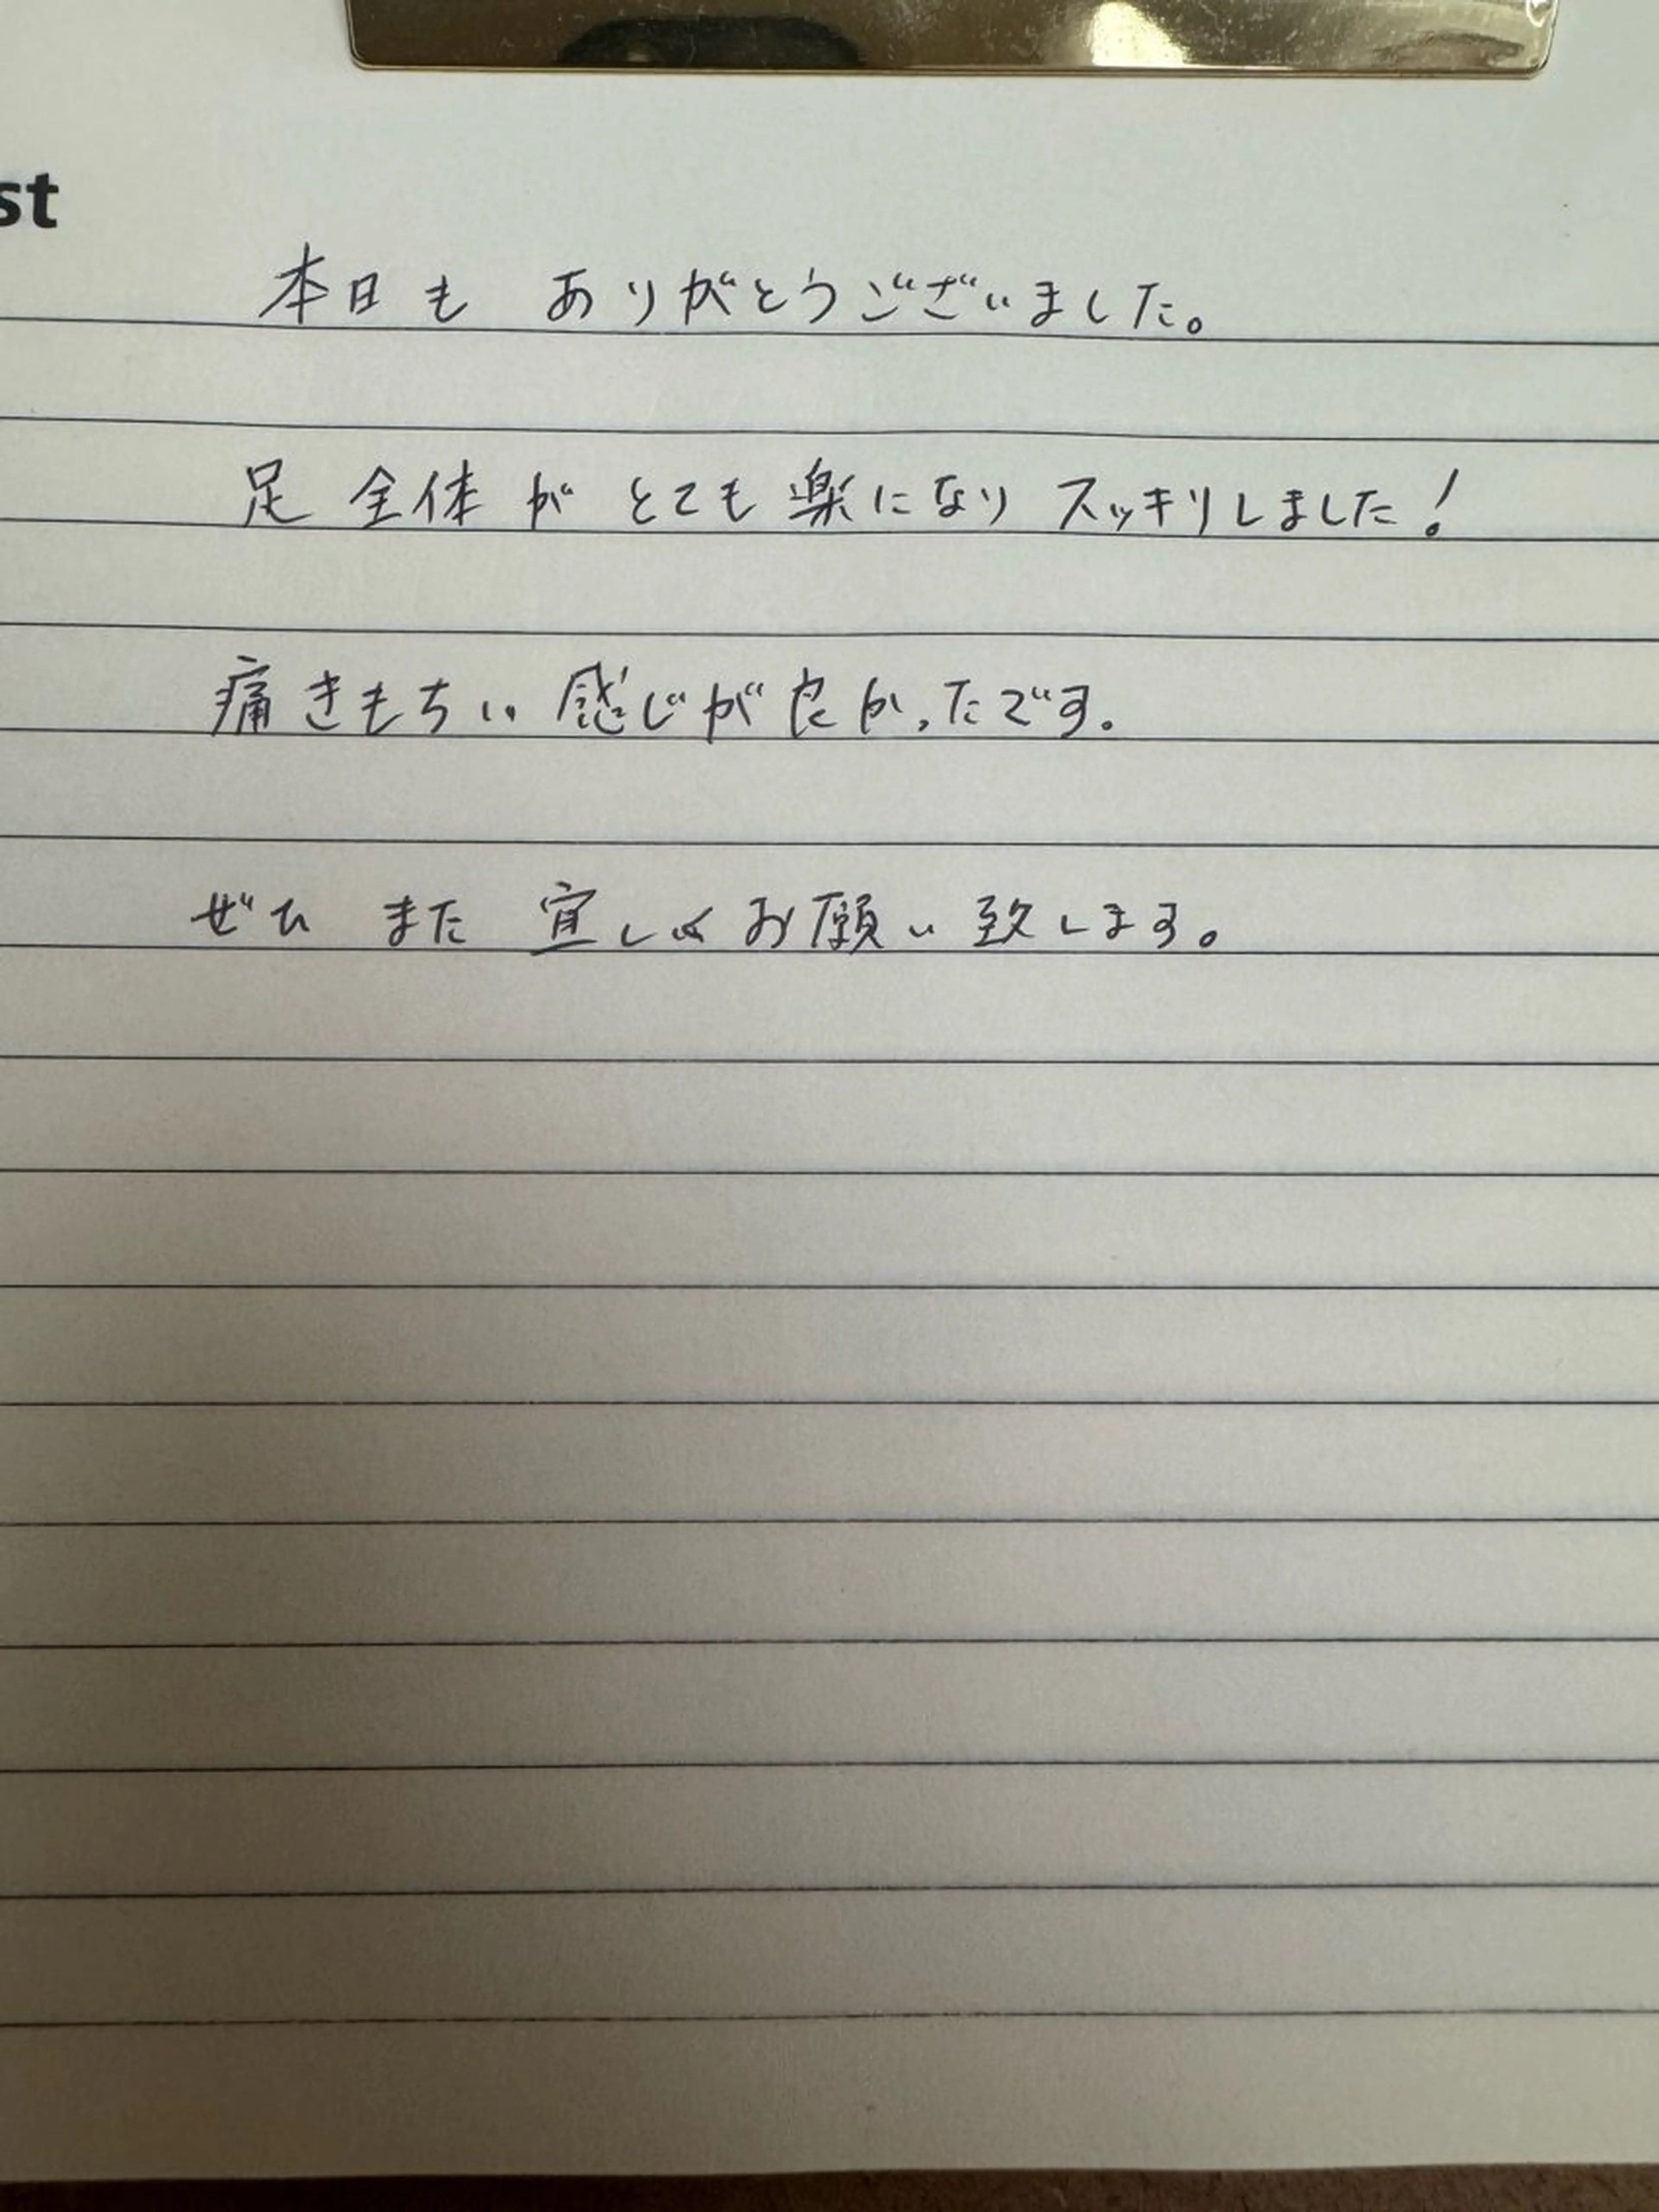 st
本日も ありがとうございました。
足全体がとても楽になりスッキリしました!
痛きもちい感じが良かったです。
ぜひ また 宜しくお願い致します。